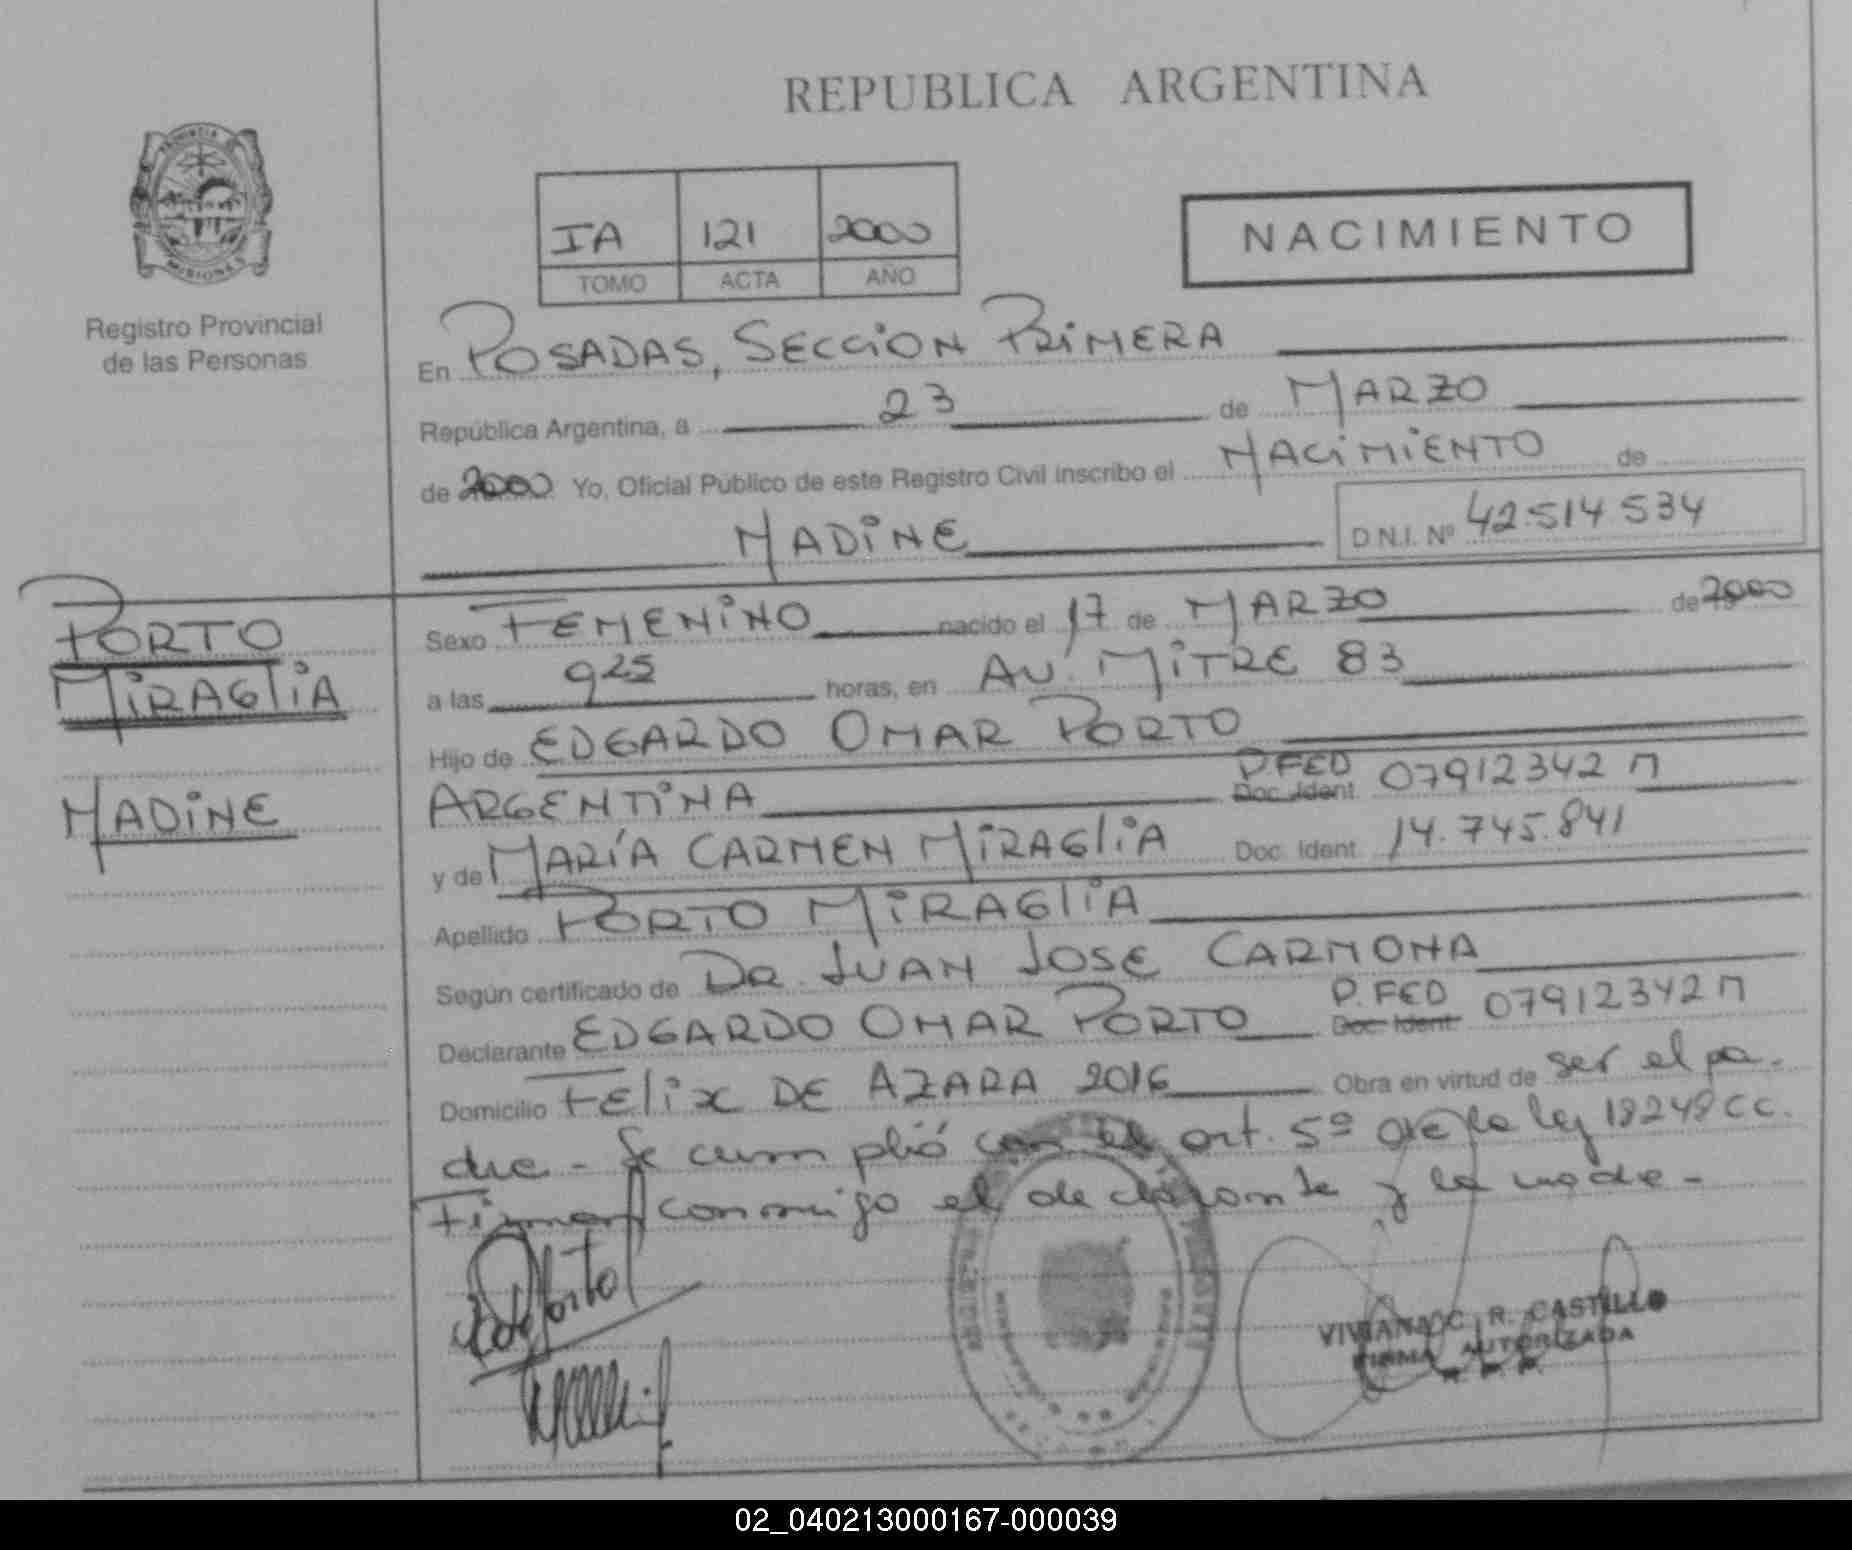 REPUBLICA ARGENTINA
PROVINCIA DE
MISIONES
Registro Provincial
de las Personas
IA 121 2000
TOMO ACTA AÑO
NACIMIENTO
En POSADAS, SECCION PRIMERA
República Argentina, a 23 de MARZO
de 2000 Yo, Oficial Público de este Registro Civil inscribo el NACIMIENTO de
NADINE D.N.I. Nº 42.514.534
PORTO
MIRAGLIA
NADINE
Sexo FEMENINO nacido el 17 de MARZO de 2000
a las 9 25 horas, en AV. MITRE 83
Hijo de EDGARDO OMAR PORTO
ARGENTINA P.FED Doc. Ident. 07912342 M
y de MARÍA CARMEN MIRAGLIA Doc. Ident. 14.745.841
Apellido PORTO MIRAGLIA
Según certificado de DR. JUAN JOSE CARMONA
Declarante EDGARDO OMAR PORTO P.FED Doc. Ident. 07912342 M
Domicilio FELIX DE AZARA 2016 Obra en virtud de ser el pa-
dre - Se cumplió con el art. 5º de la ley 18248 CC.
Firman conmigo el declarante y la madre -
VIVIANA C. R. CASTILLO
FIRMA AUTORIZADA
02_040213000167-000039